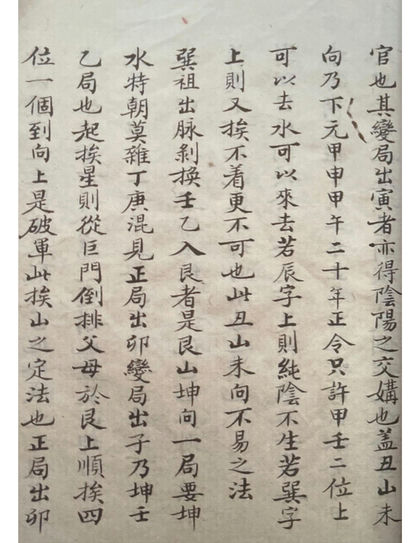 官也其變局出寅者亦得陰陽之交媾也蓋丑山未
向乃下元甲申甲午二十年正令只許甲壬二位上
可以去水可以來去若辰字上則純陰不生若巽字
上則又挨不着更不可也此丑山未向不易之法
巽祖出脉剝換壬乙入艮者是艮山坤向一局要坤
水特朝莫雜丁庚混見正局出卯變局出子乃坤壬
乙局也起挨星則從巨門倒排父母於艮上順挨四
位一個到向上是破軍此挨山之定法也正局出卯